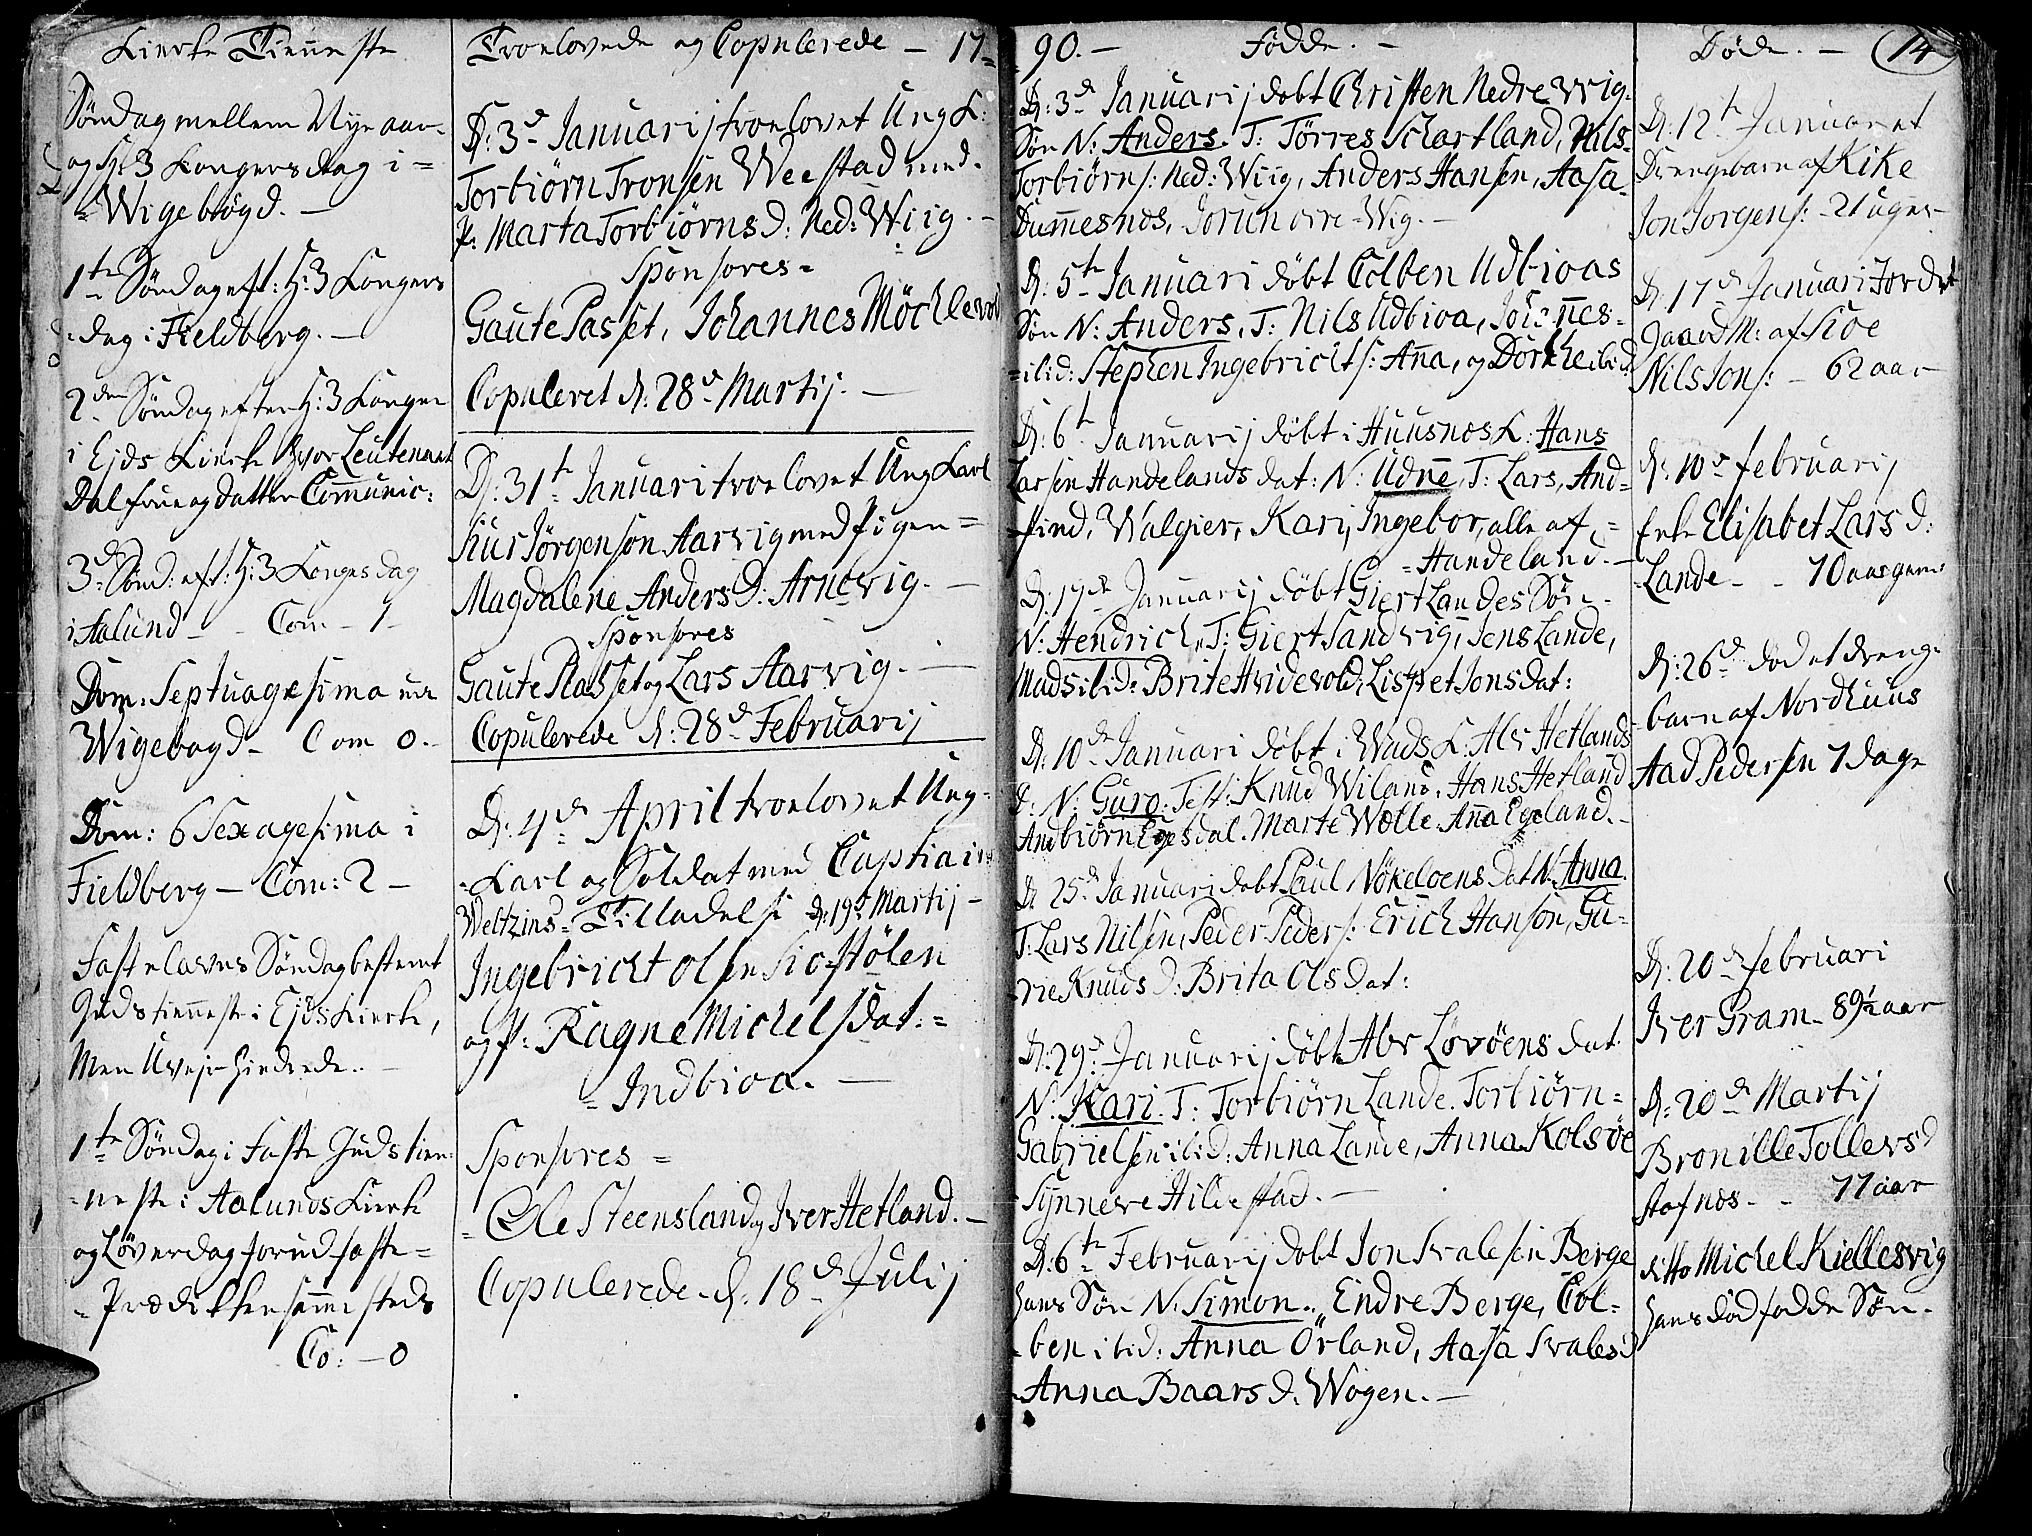 Kirke Tienneste
Søndag mellem Nye aar
og H: 3 Kongers dag i =
= Wigebøgd. —
1te Søndag eft: H: 3 Kongers
- dag i Fieldberg. —
2den Søndag efter H: 3 Konger
i Ejds Kirke hvor Leutenant
Dal frue og datter Com̅unic:
3d Sønd: eft: H: 3 Konges dag
i Aalund — Com — 7 —
Dom. Septuagesima
Wigebøgd — Com 0. —
Dom: Sexagesima i
Fieldberg — Com: 2 —
Fastelavns Søndag bestemt
Gudstienneste i Ejds Kirke,
Men Uvejr hindrede. —
1te Søndag i Faste Guds tien-
- neste i Aalunds Kirke
og Løverdag forud faste =
= Prædikken sam̅esteds
Co: — 0
Troelovede og Copulerede — 17 =
D: 3d Januarij troelovet Ung K:
Torbiørn Tronsen Weestad med
P: Marta Torbiørns D: Ned: Wiig. —
Sponsores =
Gaute Passet, Johannes Möcklevold
Copuleret d: 28d Martij. —
D: 31te Januari troelovet Ung Karl
Siur Jörgenson Aarvig med Pigen =
Magdalene Anders D: Arnevig. —
Sponsores
Gaute Plasset og Lars Aarvig. —
Copulerede d: 28d Februarij
D: 4d April troelovet Ung-
- Karl og Soldat med Captiain
Weltzins = Tilladelse d: 19d Martij —
Ingebricht Olsen Siostølen
og P: Ragne Michelsdat: =
= Indbioa. —
Sponsores =
= Ole Steensland og Iver Hetland. —
Copulerede d: 18d Julij
= 90. — Fødde. —
D: 3d Januarij døbt Christen Nedre Wiig-
Søn N: Anders. T: Tørres Schartland, Nils
Torbiørns: Ned: Wiig, Anders Hansen, Aasa
Dum̅esnos, Jorun øvre Wig. —
D: 5te Januari døbt Colben Udbioas
Søn N: Anders, T: Nils Udbioa, Johannes =
= ibid: Stephen Ingebrichts: An̅a, og Dorthe ibid
D: 6te Januarij døbt i Huusnos K: Hans
Larsen Handelands dat: N: Udn̅e, T: Lars, And=
find, Walgier, Kari, Ingebor, alle af =
= Handeland. —
D: 17de Januarij døbt Giert Landes Søn
N: Hendrich, T: Giert Sandvig, Jens Lande,
Mads ibid: Brite Hvidevold, Lisbet Jonsdat:
D: 10de Januari døbt i Wads K: Alv Hetlands
D: N: Guro: Test: Knud Wiland, Hans Hetland
Anbiørn Egesdal. Marte Wolle. An̅a Egeland. —
D: 25d Januari døbt Paul Nökeloens dat N: Anna.
T: Lars Nilsen, Peder Peders: Erich Hanson, Gu=
- rie Knuds D: Brita Olsdat:
D: 29d Januarij døbt Alv Lovöens dat
N: Kari. T: Torbiørn Lande. Torbiørn =
Gabrielsen ibid: Anna Lande, Anna Kolsøe
Synneve Hildestad. —
D: 6te Februarij døbt Jon Svalesen Berge
hans Søn N: Simon. Endre Berge, Col=
- ben ibid: Anna Örland, Aasa Svales D
- Anna Baars D. Wogen. —
Døde. — 14
D: 12te Januar et
Drengebarn af Kike
Jon Jorgens: — 2 Uger
D: 17d Januari Jordet
Gaard M: af Sioe
Nils Jons: — 62 aar
D: 10d Februarij
Enke Elisabet Lars D:
Lande — 70 aar gam:
D: 26d død et dreng-
- barn af Nordhuus
Aad Pedersen 7 dage
D: 20d Februari
Iver Gram — 89½ aar
D: 20d Martij
Bronille Tollevs D
Stafnos — 77 aar
ditto Michel Kiellesvig
hans død fødde Søn.